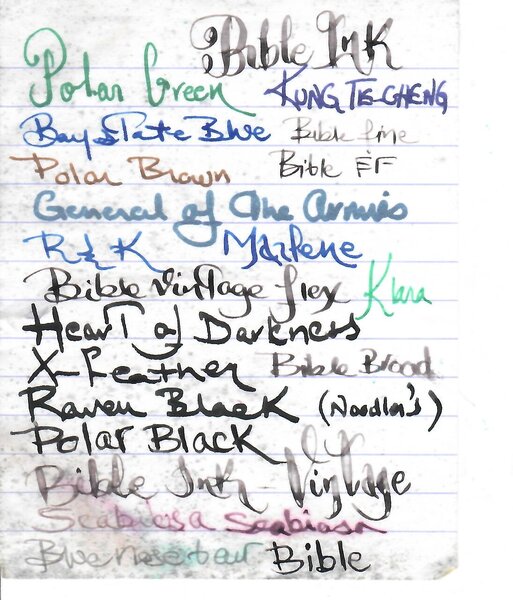 Bible Ink
Polar Green KUNG TE-CHENG
Bay State Blue Bible fine
Polar Brown Bible EF
General of the Armies
R & K Marlene
Bible Vintage flex Klara
Heart of Darkness
X-Feather Bible Broad
Raven Black (Noodler's)
Polar Black
Bible Ink - Vintage
Scabiosa Scabiosa
Blue nose bear Bible